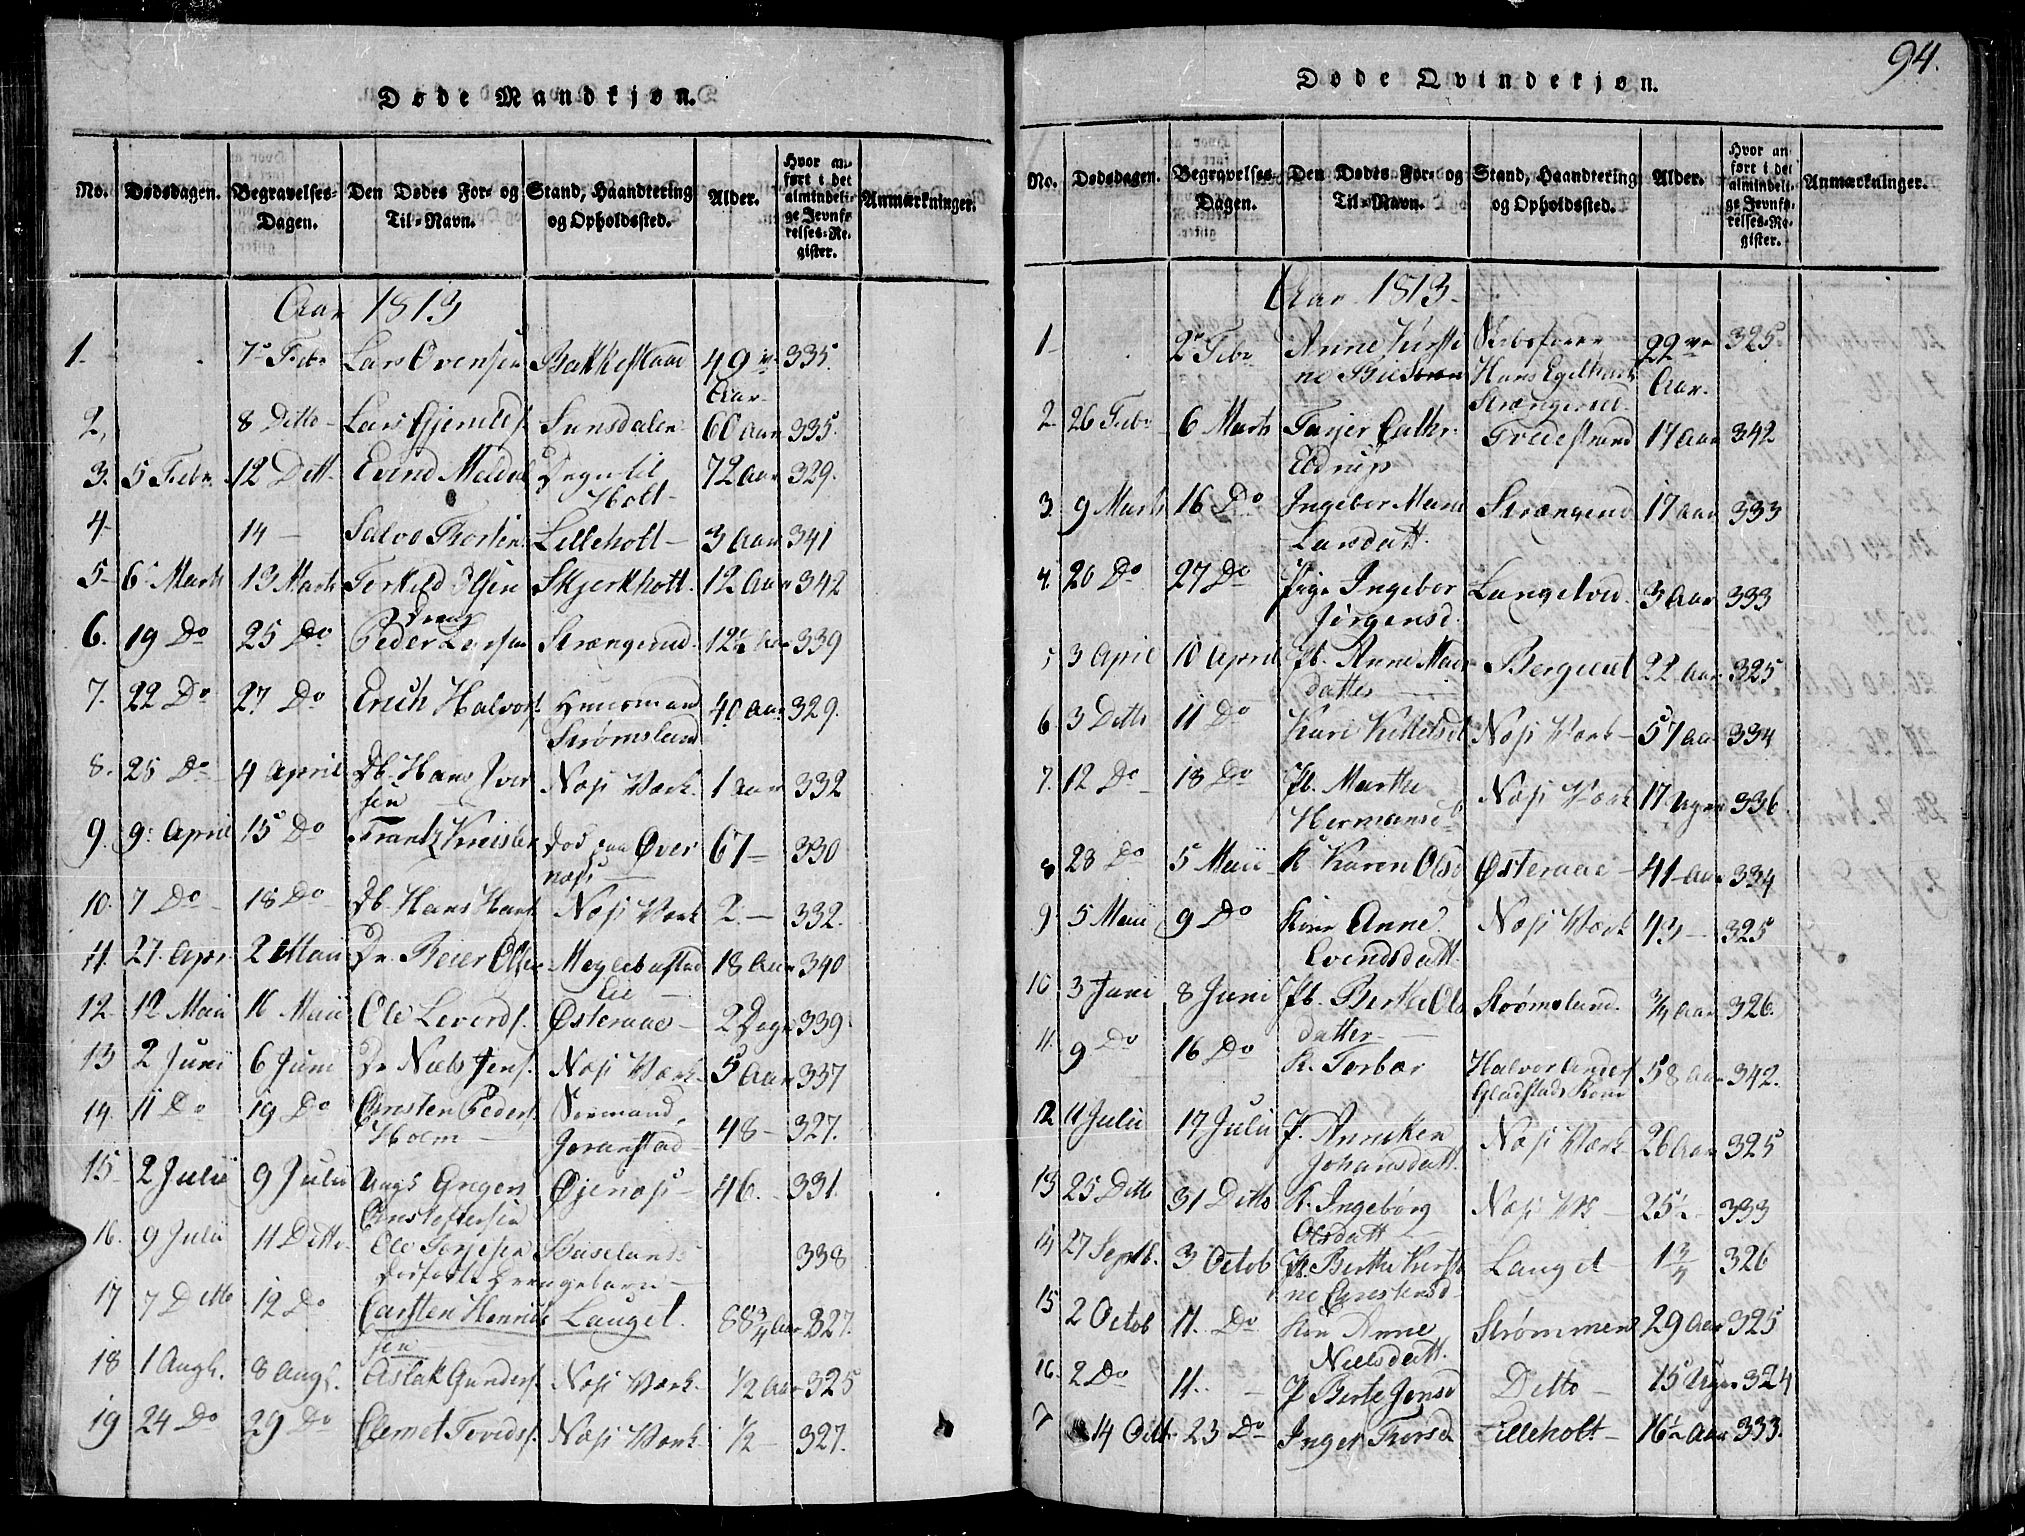 94.
Døde Mandkjøn.
No. Dødsdagen. Begravelses-Dagen. Den Dødes For- og Til-Navn. Stand, Haandtering og Opholdssted. Alder. Hvor anført i det almindelige Jevnførelses-Register. Anmærkninger.
Aar 1813
1. 7de Febr Lars Evensen Bakkestaae 49 Aar 335.
2, 8 Ditto Lars Gjerulds. Sunsdalen 60 Aar 335.
3. 5 Febr. 12 Ditt. Evind til Holt 72 Aar 329.
4 14 Salve Torsten Lilleholt 3 Aar 341
5 6 Marts 13 Marts Terkild Olsen Skjerkholt. 12 Aar 342
6. 19 Do 25 Do Dreng Peder Larsen Strængered 12½ Aar 339
7. 22 Do 27 Do Erich Halvors. Huusmand Strømsland 40 Aar 329.
8. 25 Do 4 April Db. Hans Iversen Næss Værk 1 Aar 332
9. 9 April 15 Do Frantz Kreisler Død paa Øvernæss 67 330
10. 7 Do 18 Do Db. Hans Hans. Næss Værk 2. 332.
11. 27. Apr. 2 Maii Dr. Reier Olsen 18 Aar 340
12. 12 Maii 16 Maii Ole Leverds. Østeraae 2 Dage 339
13 2 Junii 6 Juni Dr Niels Jens. Næss Værk 5 Aar 337
14. 11 Do 19 Do Christen Peders. Holm Goranstad 48 327.
15 2 Julii 9 Julii Ungs Gregers Christophersen Øjenæss 46. 331.
16. 9 Julii 11 Ditto Ole Terjesen Huselands Dødfødt Drengebarn 338
17 7 Ditto 12 Do Carsten Henriksen Lauget. 88¾ Aar 327.
18 1 Augs. 8 Augs. Aslak Gunders. Næss Værk. ½ Aar 325
19 24 Do 29 Do Clemet Tovids. Næss Værk. ½ 327.
Døde Qvindekjøn.
No. Dødsdagen. Begravelses-Dagen. Den Dødes For- og Til-Navn. Stand, Haandtering og Opholdssted. Alder. Hvor anført i det almindelige Jevnførelses-Register. Anmærkninger.
Aar 1813
1 2 Febr Anne Kirstine Hans Strængereid 22 Aar. 325
2 26 Febr 6 Marts Cathr. Eldrup Tvedestrand 17 Aar 342
3. 9 Marts 16 Do Ingebor Marie Larsdatt. Strængered 17 Aar 333
4 20 Do 27 Do Pige Ingebor Jørgensd. Langetved 3 Aar 333
5 3 April 10 April Pb. Anne datter Bergend 22 Aar 325
6. 3 Ditto 11 Do Kari Kittelsd. Næss Værk 57 Aar 334
7. 12 Do 18 Do Pb. Marthe Hermansd. Næss Værk 17 Uger 336.
8 28 Do 5 Maii K. Karen Olsd Østeraae 41 Aar 334
9 5 Maii 9 Do Kone Anne Evendsdatt. Næss Værk 43 325
10 3 Juni 8 Juni Pb. Berthe Olsdatter Strømsland. ¾ Aar 326.
11. 9 Do 16 Do K. Torbor Halvor Anders. Gladstads Kone 58 Aar 342.
12 11 Julii 17 Julii P. Anneken Johansdatt. Næss Værk 26 Aar 325
13 25 Ditto 31 Ditto K. Ingebørg Olsdatt Næss Værk 25½ 333
14 27 Septb. 3 Octob Pb. Berthe Kirstine Christensd Lauget 1¾ 326
15 2 Octob 11. Do Kone Anne Nielsdatt. Strømmen 29 Aar 325
16. 2 Do 11. P Berte Jensd Ditto 15 Uger 324
7 14 Oct. 23 Do Inger Thorsd. Lilleholt 16½ Aar 333.